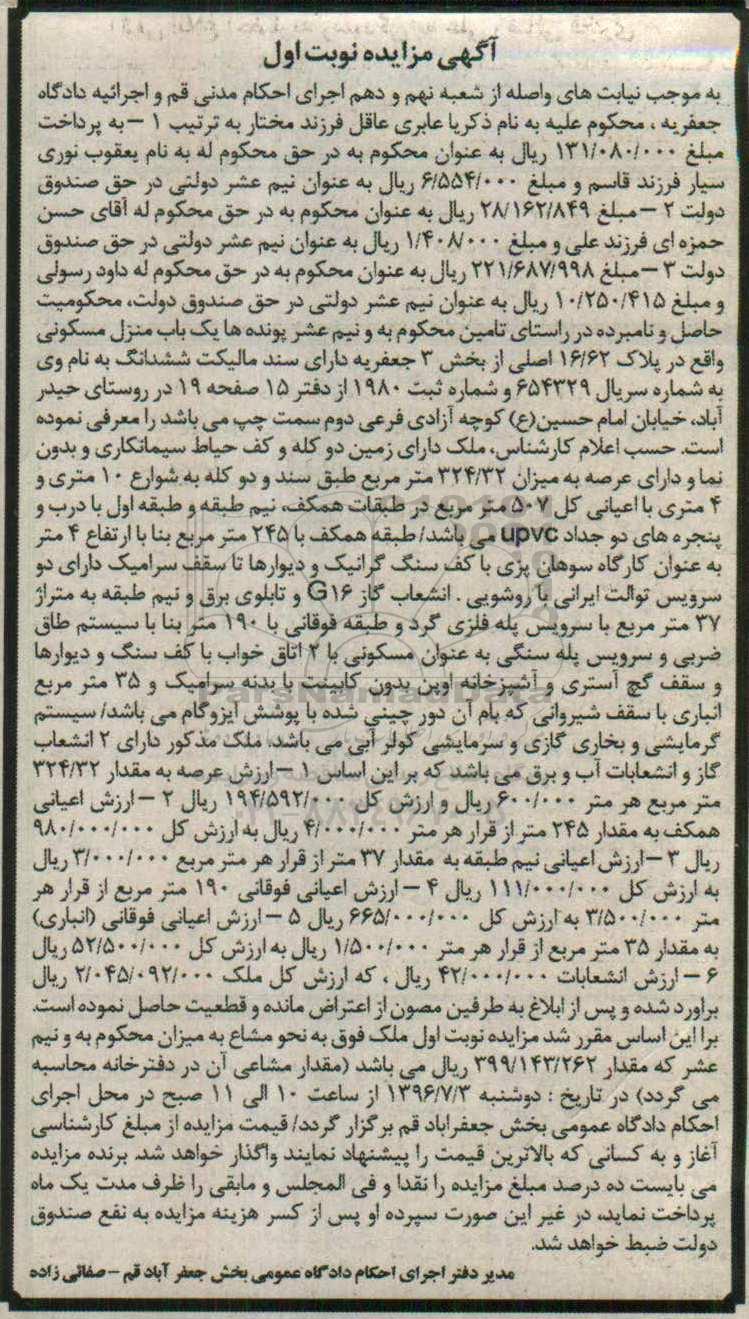 آگهی مزایده نوبت اول
به موجب نیابت های واصله از شعبه نهم و دهم اجرای احکام مدنی قم و اجرائیه دادگاه
جعفریه ، محکوم علیه به نام ذکریا عابری عاقل فرزند مختار به ترتیب ۱ –به پرداخت
مبلغ ۱۳۱/۰۸۰/۰۰۰ ریال به عنوان محکوم به در حق محکوم له به نام یعقوب نوری
سیار فرزند قاسم و مبلغ ۶/۵۵۴/۰۰۰ ریال به عنوان نیم عشر دولتی در حق صندوق
دولت ۲ –مبلغ ۲۸/۱۶۲/۸۴۹ ریال به عنوان محکوم به در حق محکوم له آقای حسن
حمزه ای فرزند علی و مبلغ ۱/۴۰۸/۰۰۰ ریال به عنوان نیم عشر دولتی در حق صندوق
دولت ۳ –مبلغ ۲۲۱/۶۸۷/۹۹۸ ریال به عنوان محکوم به در حق محکوم له داود رسولی
و مبلغ ۱۰/۲۵۰/۴۱۵ ریال به عنوان نیم عشر دولتی در حق صندوق دولت، محکومیت
حاصل و نامبرده در راستای تامین محکوم به و نیم عشر پونده ها یک باب منزل مسکونی
واقع در پلاک ۱۶/۶۲ اصلی از بخش ۳ جعفریه دارای سند مالیکت ششدانگ به نام وی
به شماره سریال ۶۵۴۳۲۹ و شماره ثبت ۱۹۸۰ از دفتر ۱۵ صفحه ۱۹ در روستای حیدر
آباد، خیابان امام حسین(ع) کوچه آزادی فرعی دوم سمت چپ می باشد را معرفی نموده
است. حسب اعلام کارشناس، ملک دارای زمین دو کله و کف حیاط سیمانکاری و بدون
نما و دارای عرصه به میزان ۳۲۴/۳۲ متر مربع طبق سند و دو کله به شوارع ۱۰ متری و
۴ متری با اعیانی کل ۵۰۷ متر مربع در طبقات همکف، نیم طبقه و طبقه اول با درب و
پنجره های دو جداد upvc می باشد/ طبقه همکف با ۲۴۵ متر مربع بنا با ارتفاع ۴ متر
به عنوان کارگاه سوهان پزی با کف سنگ گرانیک و دیوارها تا سقف سرامیک دارای دو
سرویس توالت ایرانی با روشویی . انشعاب گاز G۱۶ و تابلوی برق و نیم طبقه به متراژ
۳۷ متر مربع با سرویس پله فلزی گرد و طبقه فوقانی با ۱۹۰ متر بنا با سیستم طاق
ضربی و سرویس پله سنگی به عنوان مسکونی با ۲ اتاق خواب با کف سنگ و دیوارها
و سقف گچ آستری و آشپزخانه اوپن بدون کابینت با بدنه سرامیک و ۳۵ متر مربع
انباری با سقف شیروانی که بام آن دور چینی شده با پوشش ایزوگام می باشد/ سیستم
گرمایشی و بخاری گازی و سرمایشی کولر آبی می باشد، ملک مذکور دارای ۲ انشعاب
گاز و انشعابات آب و برق می باشد که بر این اساس ۱ –ارزش عرصه به مقدار ۳۲۴/۳۲
متر مربع هر متر ۶۰۰/۰۰۰ ریال و ارزش کل ۱۹۴/۵۹۲/۰۰۰ ریال ۲ – ارزش اعیانی
همکف به مقدار ۲۴۵ متر از قرار هر متر ۴/۰۰۰/۰۰۰ ریال به ارزش کل ۹۸۰/۰۰۰/۰۰۰
ریال ۳ –ارزش اعیانی نیم طبقه به مقدار ۳۷ متر از قرار هر متر مربع ۳/۰۰۰/۰۰۰ ریال
به ارزش کل ۱۱۱/۰۰۰/۰۰۰ ریال ۴ – ارزش اعیانی فوقانی ۱۹۰ متر مربع از قرار هر
متر ۳/۵۰۰/۰۰۰ به ارزش کل ۶۶۵/۰۰۰/۰۰۰ ریال ۵ – ارزش اعیانی فوقانی (انباری)
به مقدار ۳۵ متر مربع از قرار هر متر ۱/۵۰۰/۰۰۰ ریال به ارزش کل ۵۲/۵۰۰/۰۰۰ ریال
۶ – ارزش انشعابات ۴۲/۰۰۰/۰۰۰ ریال ، که ارزش کل ملک ۲/۰۴۵/۰۹۲/۰۰۰ ریال
براورد شده و پس از ابلاغ به طرفین مصون از اعتراض مانده و قطعیت حاصل نموده است.
برا این اساس مقرر شد مزایده نوبت اول ملک فوق به نحو مشاع به میزان محکوم به و نیم
عشر که مقدار ۳۹۹/۱۴۳/۲۶۲ ریال می باشد (مقدار مشاعی آن در دفترخانه محاسبه
می گردد) در تاریخ : دوشنبه ۱۳۹۶/۷/۳ از ساعت ۱۰ الی ۱۱ صبح در محل اجرای
احکام دادگاه عمومی بخش جعفراباد قم برگزار گردد/ قیمت مزایده از مبلغ کارشناسی
آغاز و به کسانی که بالاترین قیمت را پیشنهاد نمایند واگذار خواهد شد. برنده مزایده
می بایست ده درصد مبلغ مزایده را نقدا و فی المجلس و مابقی را ظرف مدت یک ماه
پرداخت نماید، در غیر این صورت سپرده او پس از کسر هزینه مزایده به نفع صندوق
دولت ضبط خواهد شد.
مدیر دفتر اجرای احکام دادگاه عمومی بخش جعفر آباد قم – صفائی زاده